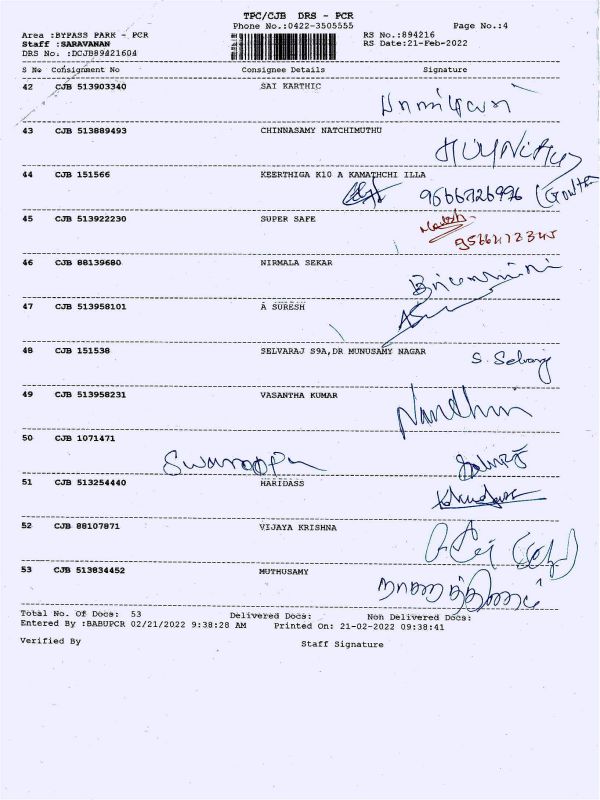 TPC/CJB DRS - PCR
Phone No.:0422-3505555 Page No.:4
Area :BYPASS PARK - PCR RS No.:894216
Staff :SARAVANAN RS Date:21-Feb-2022
DRS No. :DCJB89421604
S No Consignment No Consignee Details Signature
42 CJB 513903340 SAI KARTHIC
43 CJB 513889493 CHINNASAMY NATCHIMUTHU
44 CJB 151566 KEERTHIGA K10 A KAMATHCHI ILLA
9566726996
45 CJB 513922230 SUPER SAFE
46 CJB 88139680 NIRMALA SEKAR
47 CJB 513958101 A SURESH
48 CJB 151538 SELVARAJ S9A,DR MUNUSAMY NAGAR
S. Selvaraj
49 CJB 513958231 VASANTHA KUMAR
Nandhini
50 CJB 1071471
51 CJB 513254440 HARIDASS
52 CJB 88107871 VIJAYA KRISHNA
53 CJB 513834452 MUTHUSAMY
Total No. Of Docs: 53 Delivered Docs: Non Delivered Docs:
Entered By :BABUPCR 02/21/2022 9:38:28 AM Printed On: 21-02-2022 09:38:41
Verified By Staff Signature